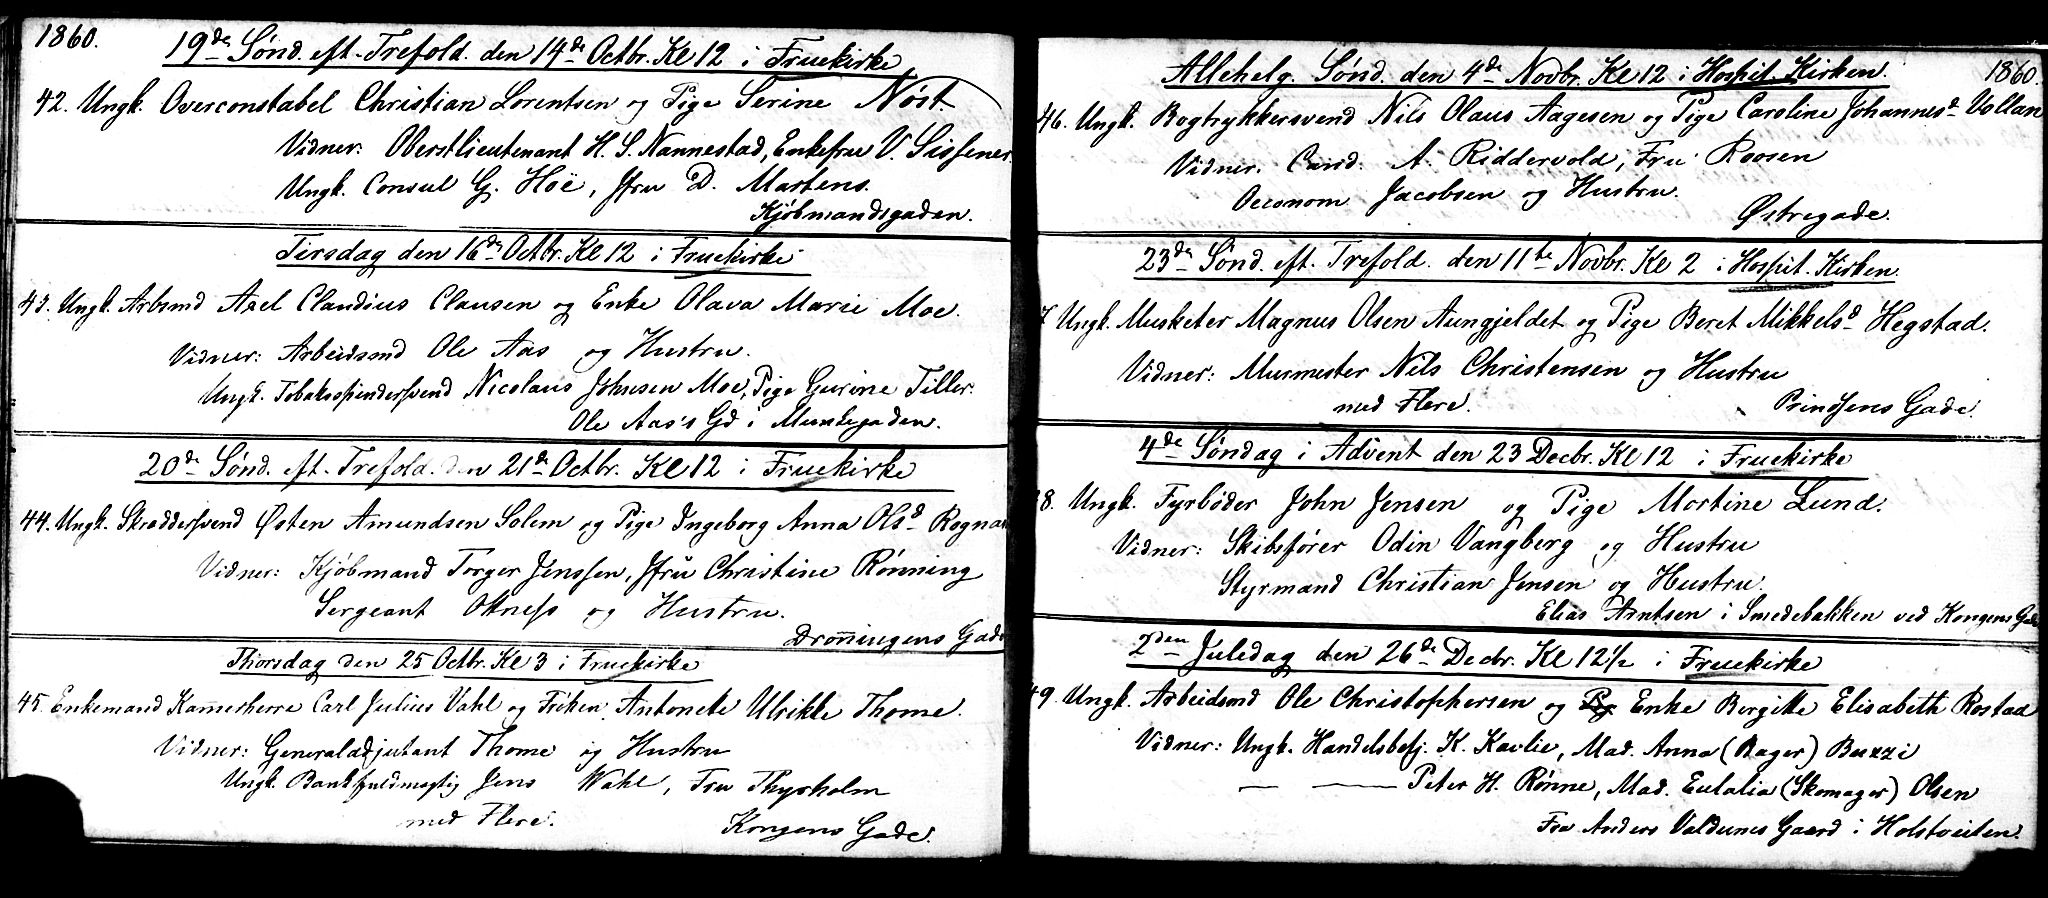 1860.
19de Sønd. eft. Trefold. den 14de Octbr. Kl 12 i Fruekirke
42. Ungk. Overconstabel Christian Lorentsen og Pige Serine Nøst.
Vidner: Oberstlieutenant H. S. Nannestad, Enkefru V. Sissener.
Ungk. Consul G. Höe, Jfru D. Martens.
Kjøbmandsgaden.
Tirsdag den 16de Octbr. Kl 12 i Fruekirke
43. Ungk. Arbsmd Axel Claudius Clausen og Enke Olava Marie Moe.
Vidner: Arbeidsmd Ole Aas og Hustru.
Ungk. Tobaksspindersvend Nicolaus Johnsen Moe, Pige Gurine Tiller.
Ole Aas's Gd i Munkegaden.
20de Sønd. eft. Trefold. den 21de Octbr. Kl 12 i Fruekirke
44. Ungk. Skræddersvend Østen Amundsen Solem og Pige Ingeborg Anna Olsd Rognan
Vidner: Kjöbmand Torger Jenssen, Jfru Christine Rønning
Sergeant Ottness og Hustru.
Dronningens Gade
Thorsdag den 25 Octbr. Kl 3 i Fruekirke
45. Enkemand Kammerherre Carl Julius Vahl og Frøken Antonete Ulrikke Thome.
Vidner: Generaladjutant Thome og Hustru
Ungk. Bankfuldmægtig Jens Wahl, Fru Thyrholm
med Flere.
Kongens Gade.
1860.
Allehelg. Sønd. den 4de Novbr. Kl 12 i Hospit. Kirken.
46. Ungk. Bogtrykkersvend Nils Olaus Aagesen og Pige Caroline Johannesd Vollan
Vidner: Cand. A. Riddervold, Fru Roosen
Oeconom Jacobsen og Hustru.
Østregade.
23de Sønd. eft. Trefold. den 11te Novbr. Kl 2 i Hospit. Kirken.
7 Ungk. Musketer Magnus Olsen Aungjeldet og Pige Beret Mikkelsd Hegstad.
Vidner: Murmester Nils Christensen og Hustru
med Flere.
Prindsens Gade.
4de Søndag i Advent den 23 Decbr. Kl 12 i Fruekirke
8. Ungk. Fyrbøder John Jensen og Pige Martine Lund.
Vidner: Skibsfører Odin Vangberg og Hustru
Styrmand Christian Jensen og Hustru.
Elias Arntsen i Smedebakken ved Kongens Gade
2den Juledag den 26de Decbr. Kl 12 1/2 i Fruekirke
49. Ungk. Arbeidsmd Ole Christophersen og Enke Birgitte Elisabeth Rostad
Vidner: Ungk. Handelsbesj. K. Kavlie, Mad. Anna (Bager) Buzzi
— — Peter H. Rønne, Mad. Eulalia (Skomager) Olsen
Fra Anders Valdumes Gaard i Holstveiten.